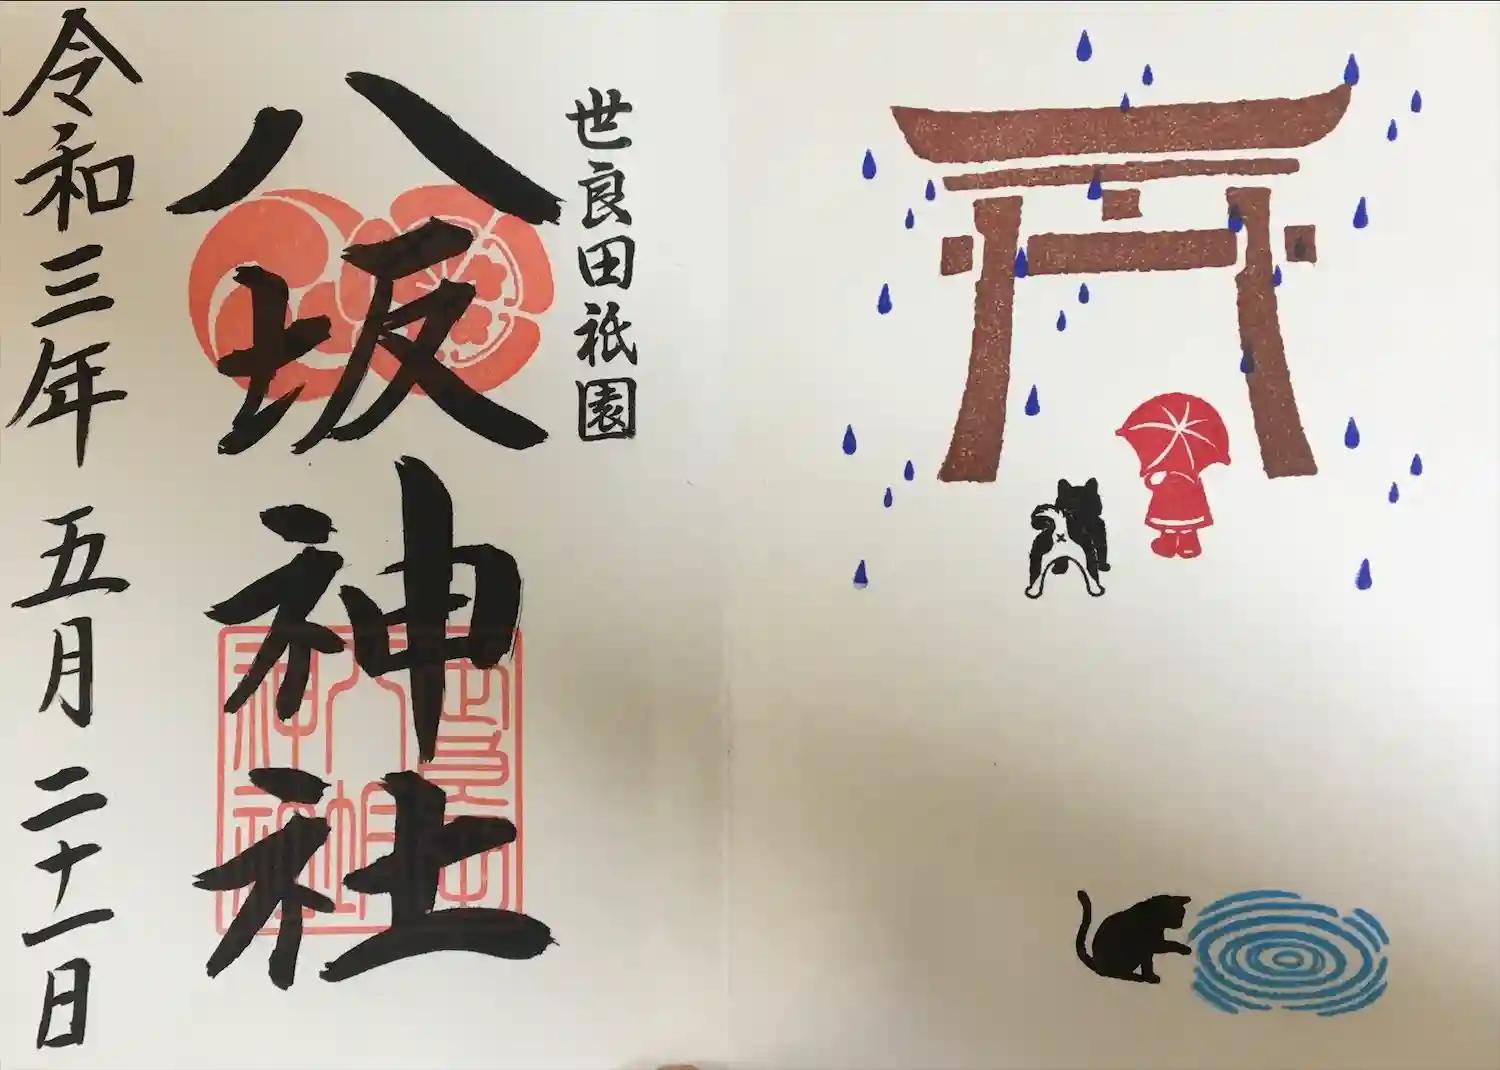 世良田祇園
八坂神社
令和三年 五月 二十一日